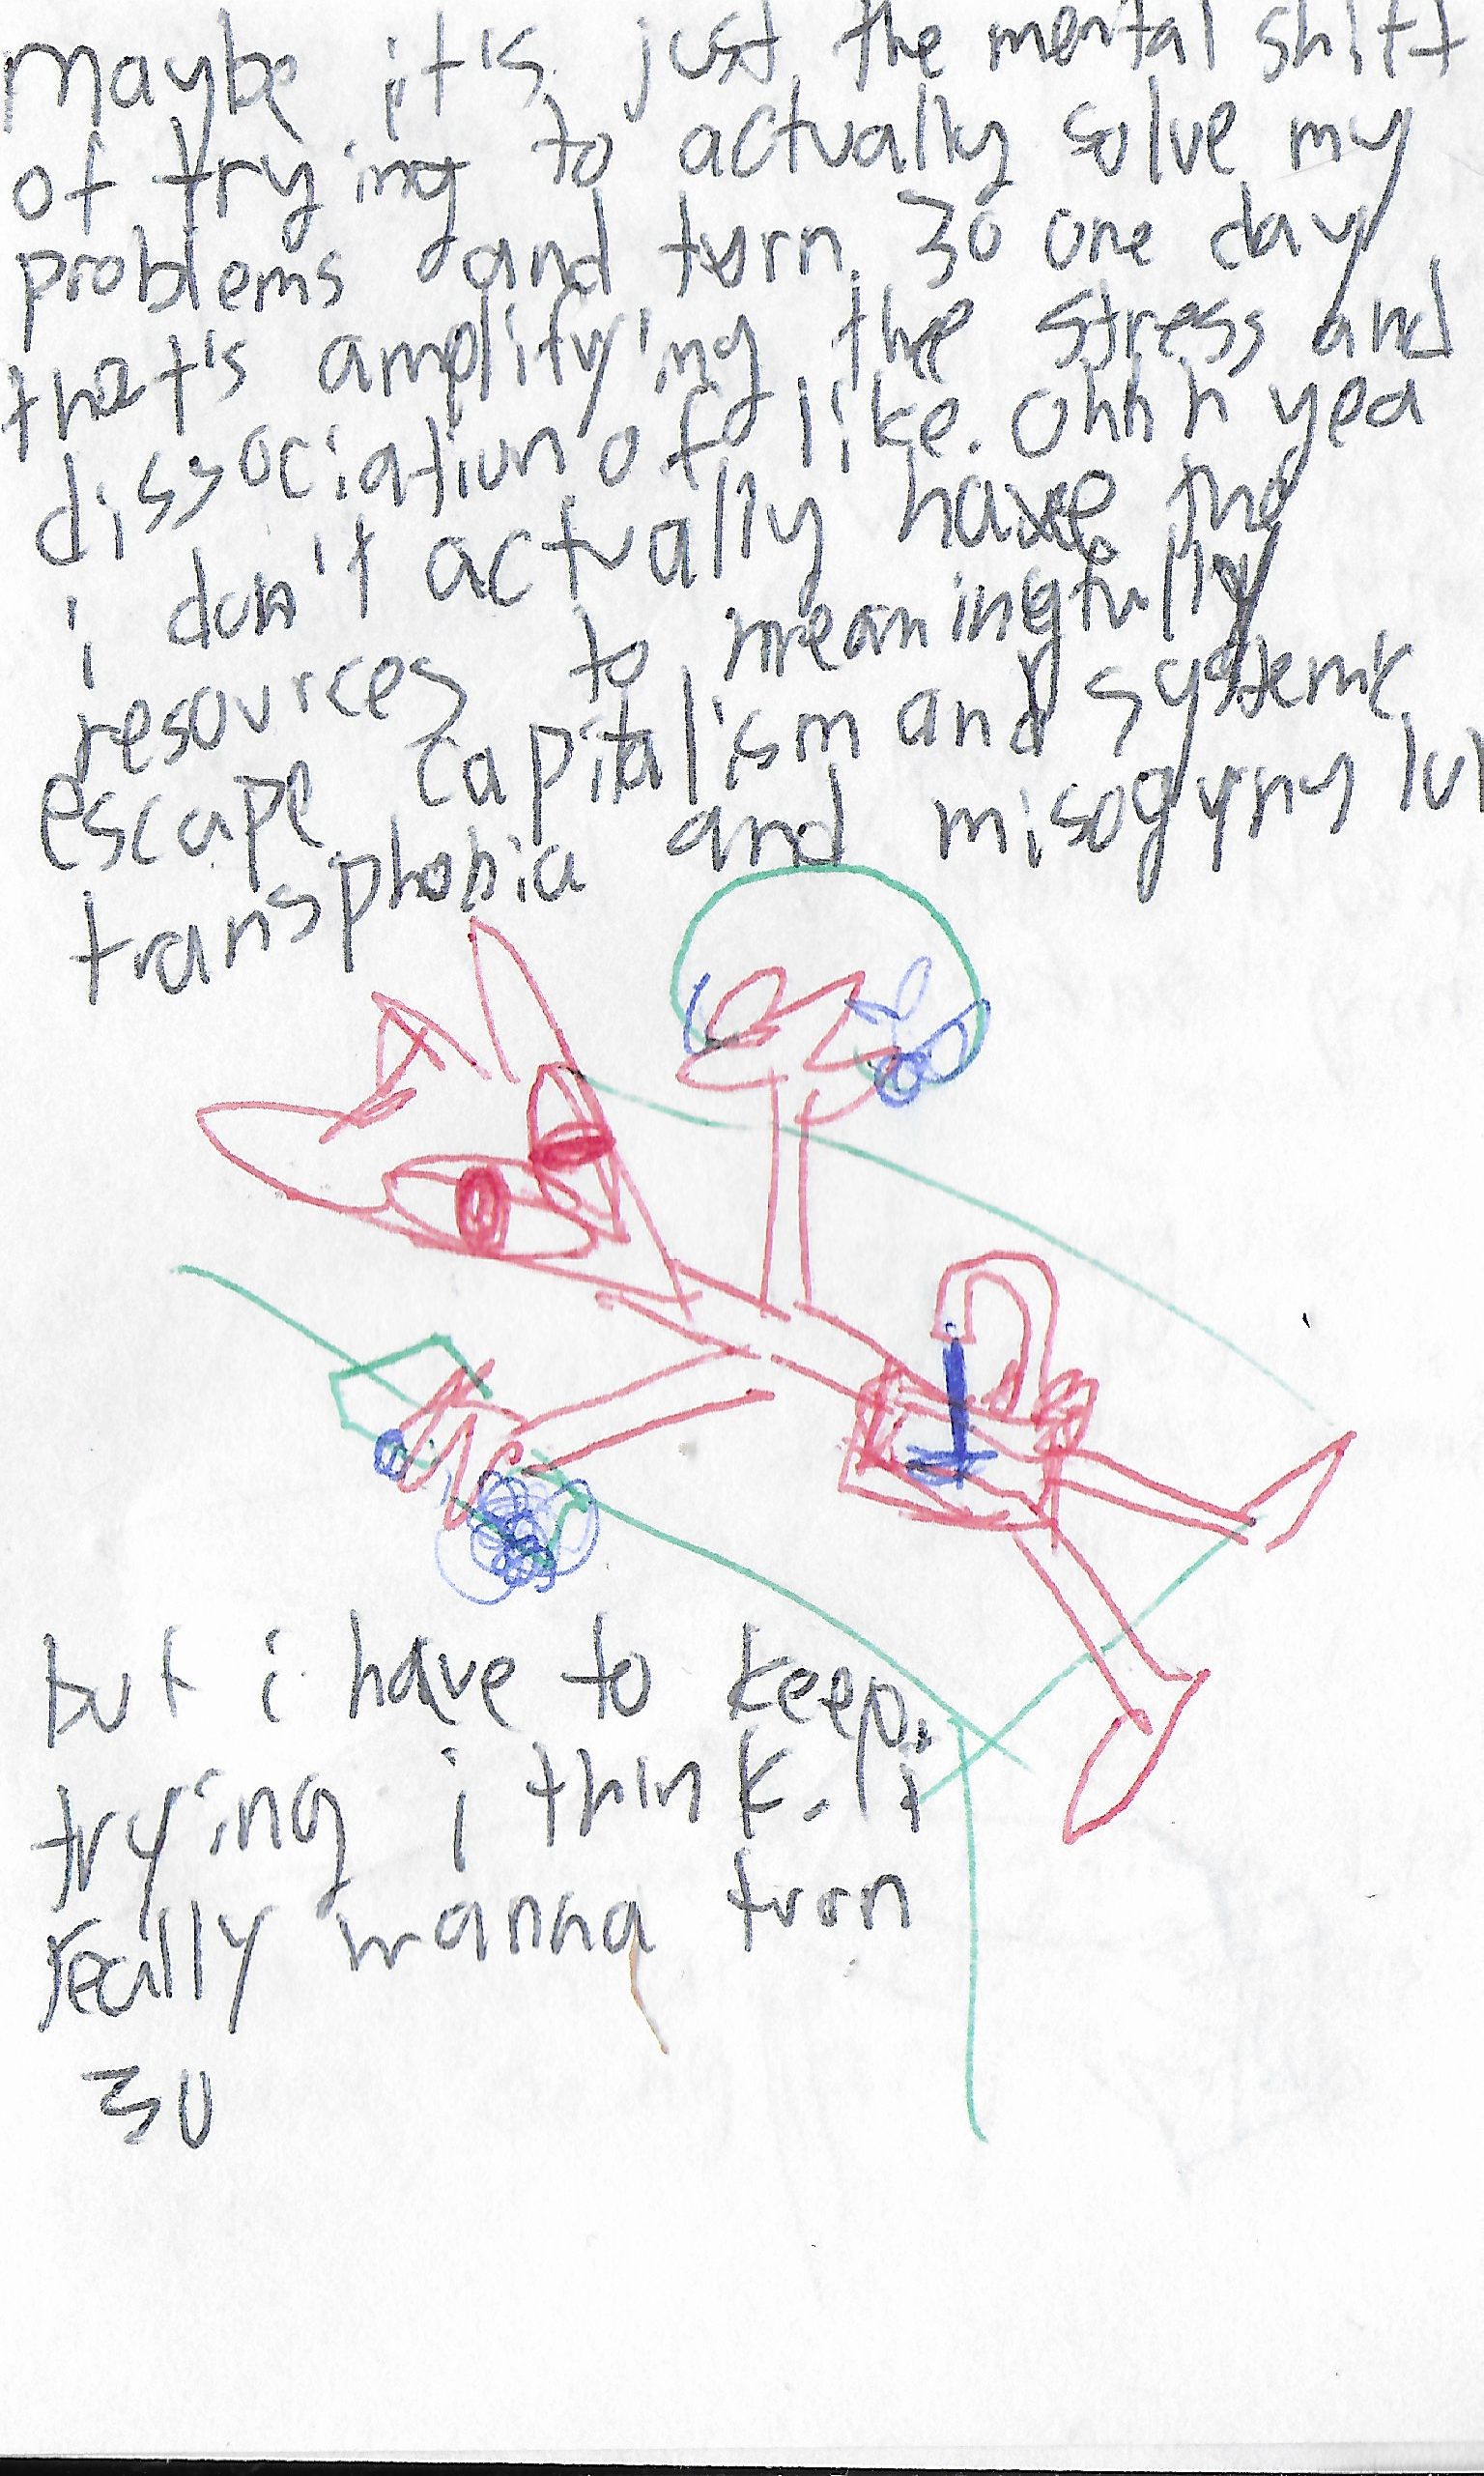 maybe it's just the mental shift
of trying to actually solve my
problems and turn 30 one day
that's amplifying the stress and
dissociation of like. Ohhh yea
i don't actually have the
resources to meaningfully
escape capitalism and systemic
transphobia and misogyny lol
but i have to keep
trying i think. i
really wanna turn
30